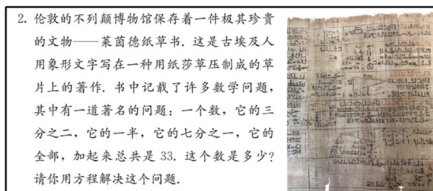 2. 伦敦的不列颠博物馆保存着一件极其珍贵
的文物——莱茵德纸草书. 这是古埃及人
用象形文字写在一种用纸莎草压制成的草
片上的著作. 书中记载了许多数学问题,
其中有一道著名的问题：一个数, 它的三
分之二, 它的一半, 它的七分之一, 它的
全部, 加起来总共是 33. 这个数是多少?
请你用方程解决这个问题.